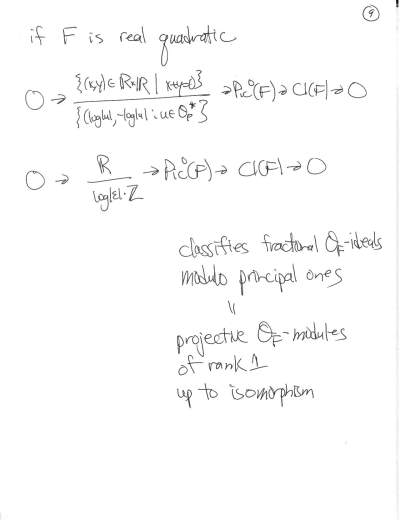 9
if F is real quadratic
0 → {(x,y) ∈ ℝ×ℝ | x+y=0} / {(log|u|, -log|u| : u ∈ O_F^*} → Pic⁰(F) → Cl(F) → 0
0 → ℝ / log|ε|·ℤ → Pic⁰(F) → Cl(F) → 0
classifies fractional O_F-ideals
modulo principal ones
projective O_F-modules
of rank 1
up to isomorphism